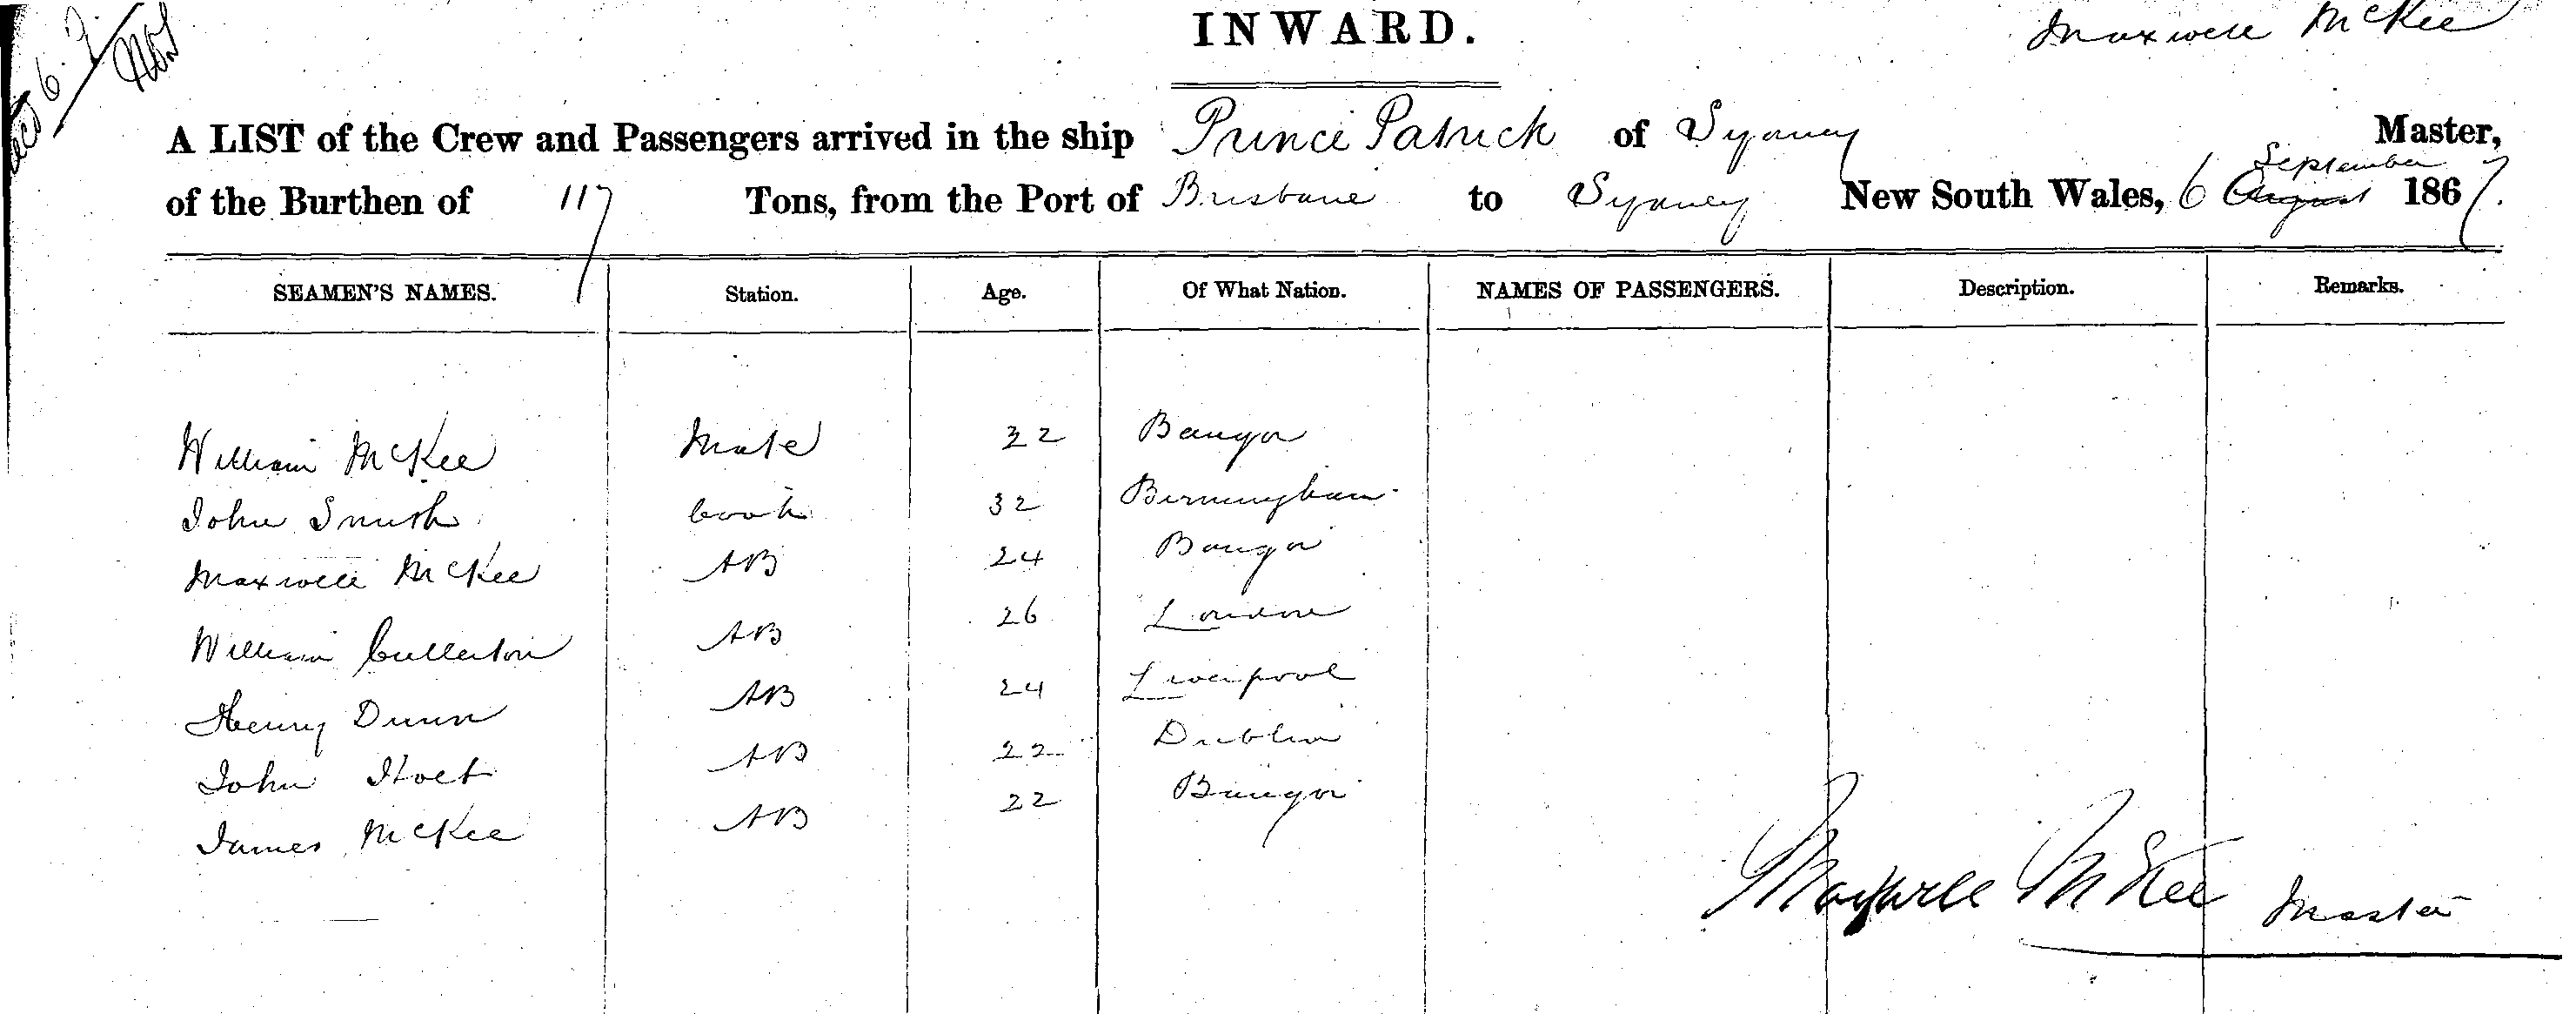 INWARD.
Maxwell McKee
A LIST of the Crew and Passengers arrived in the ship Prince Patrick of Sydney Master,
of the Burthen of 117 Tons, from the Port of Brisbane to Sydney New South Wales, 6 August September 1867.
SEAMEN'S NAMES. Station. Age. Of What Nation. NAMES OF PASSENGERS. Description. Remarks.
William McKee Mate 32 Bangor
John Smith Cook 32 Birmingham
Maxwell McKee AB 24 Bangor
William Cullerton AB 26 London
Henry Dunn AB 24 Liverpool
John Holt AB 22 Dublin
James McKee AB 22 Bangor
Maxwell McKee Master